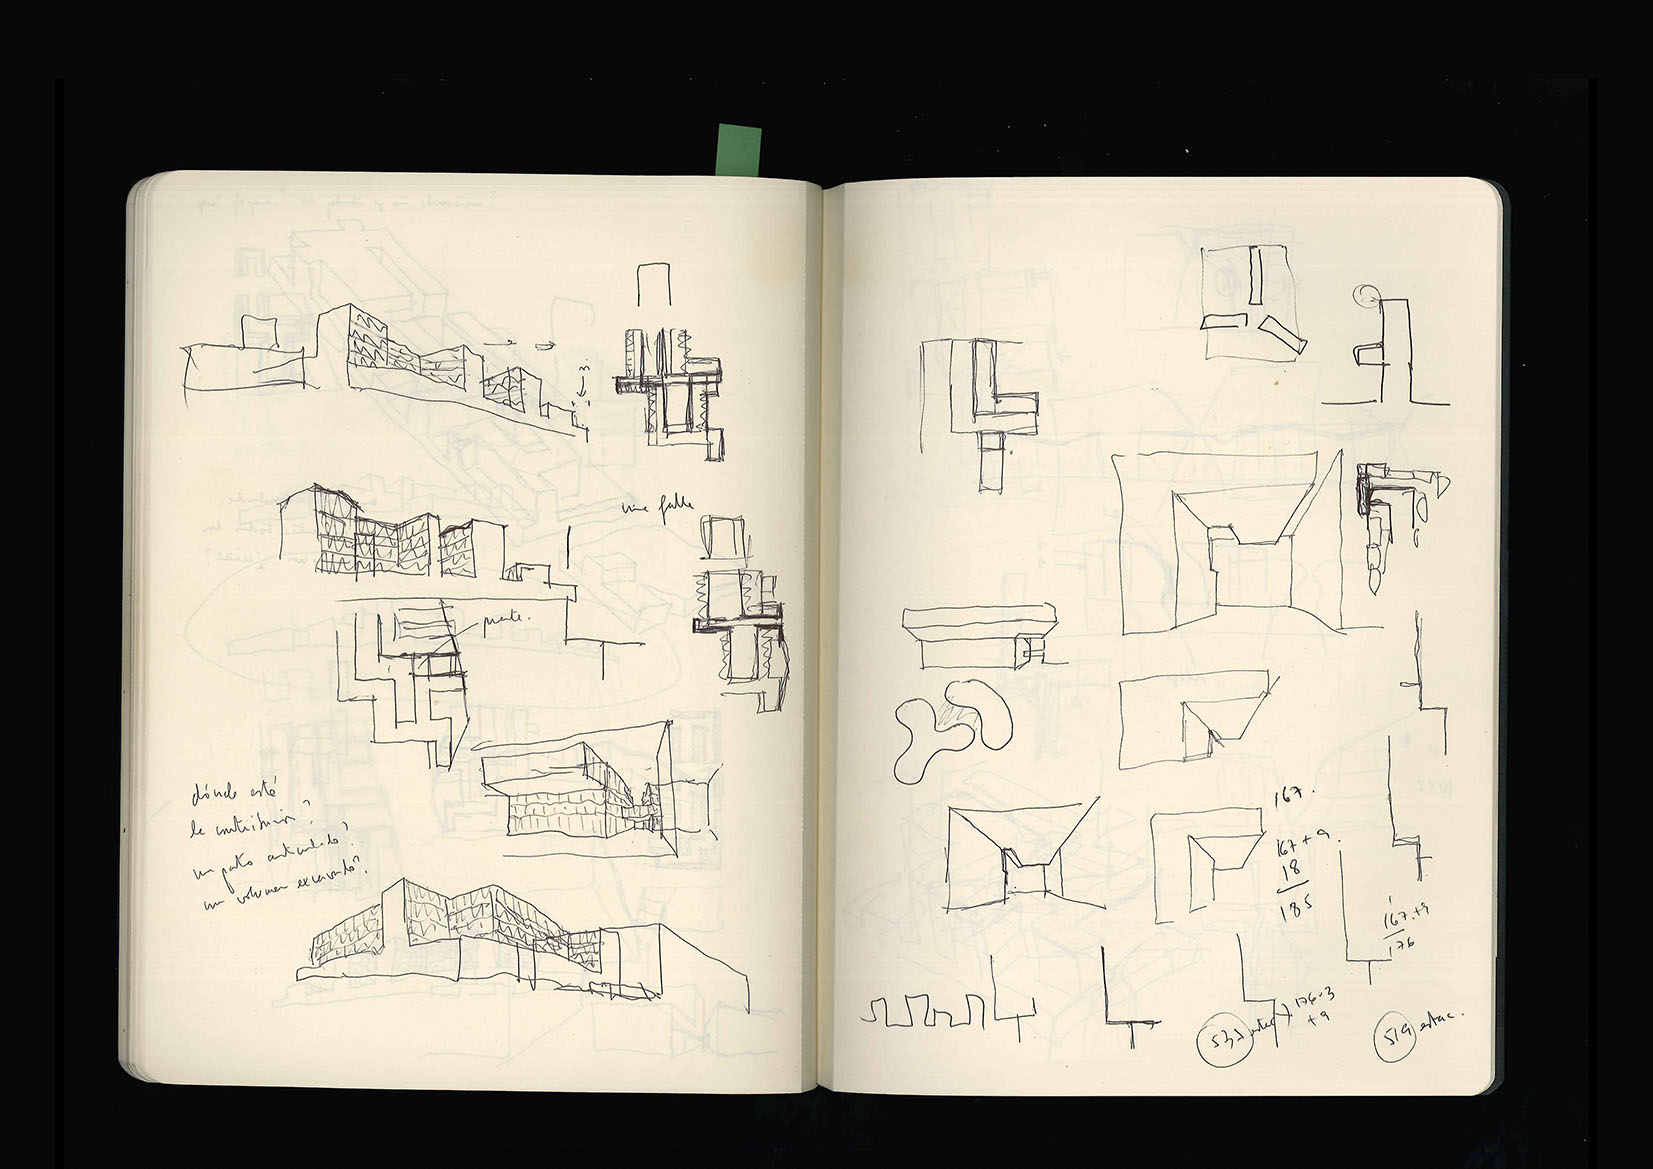 una falla
puente.
dónde está
la contribución?
un patio articulado?
un volumen excavado?
167.
167 + 9
18
185
167+9
176
537 estac
176·3
+9
519 estac.